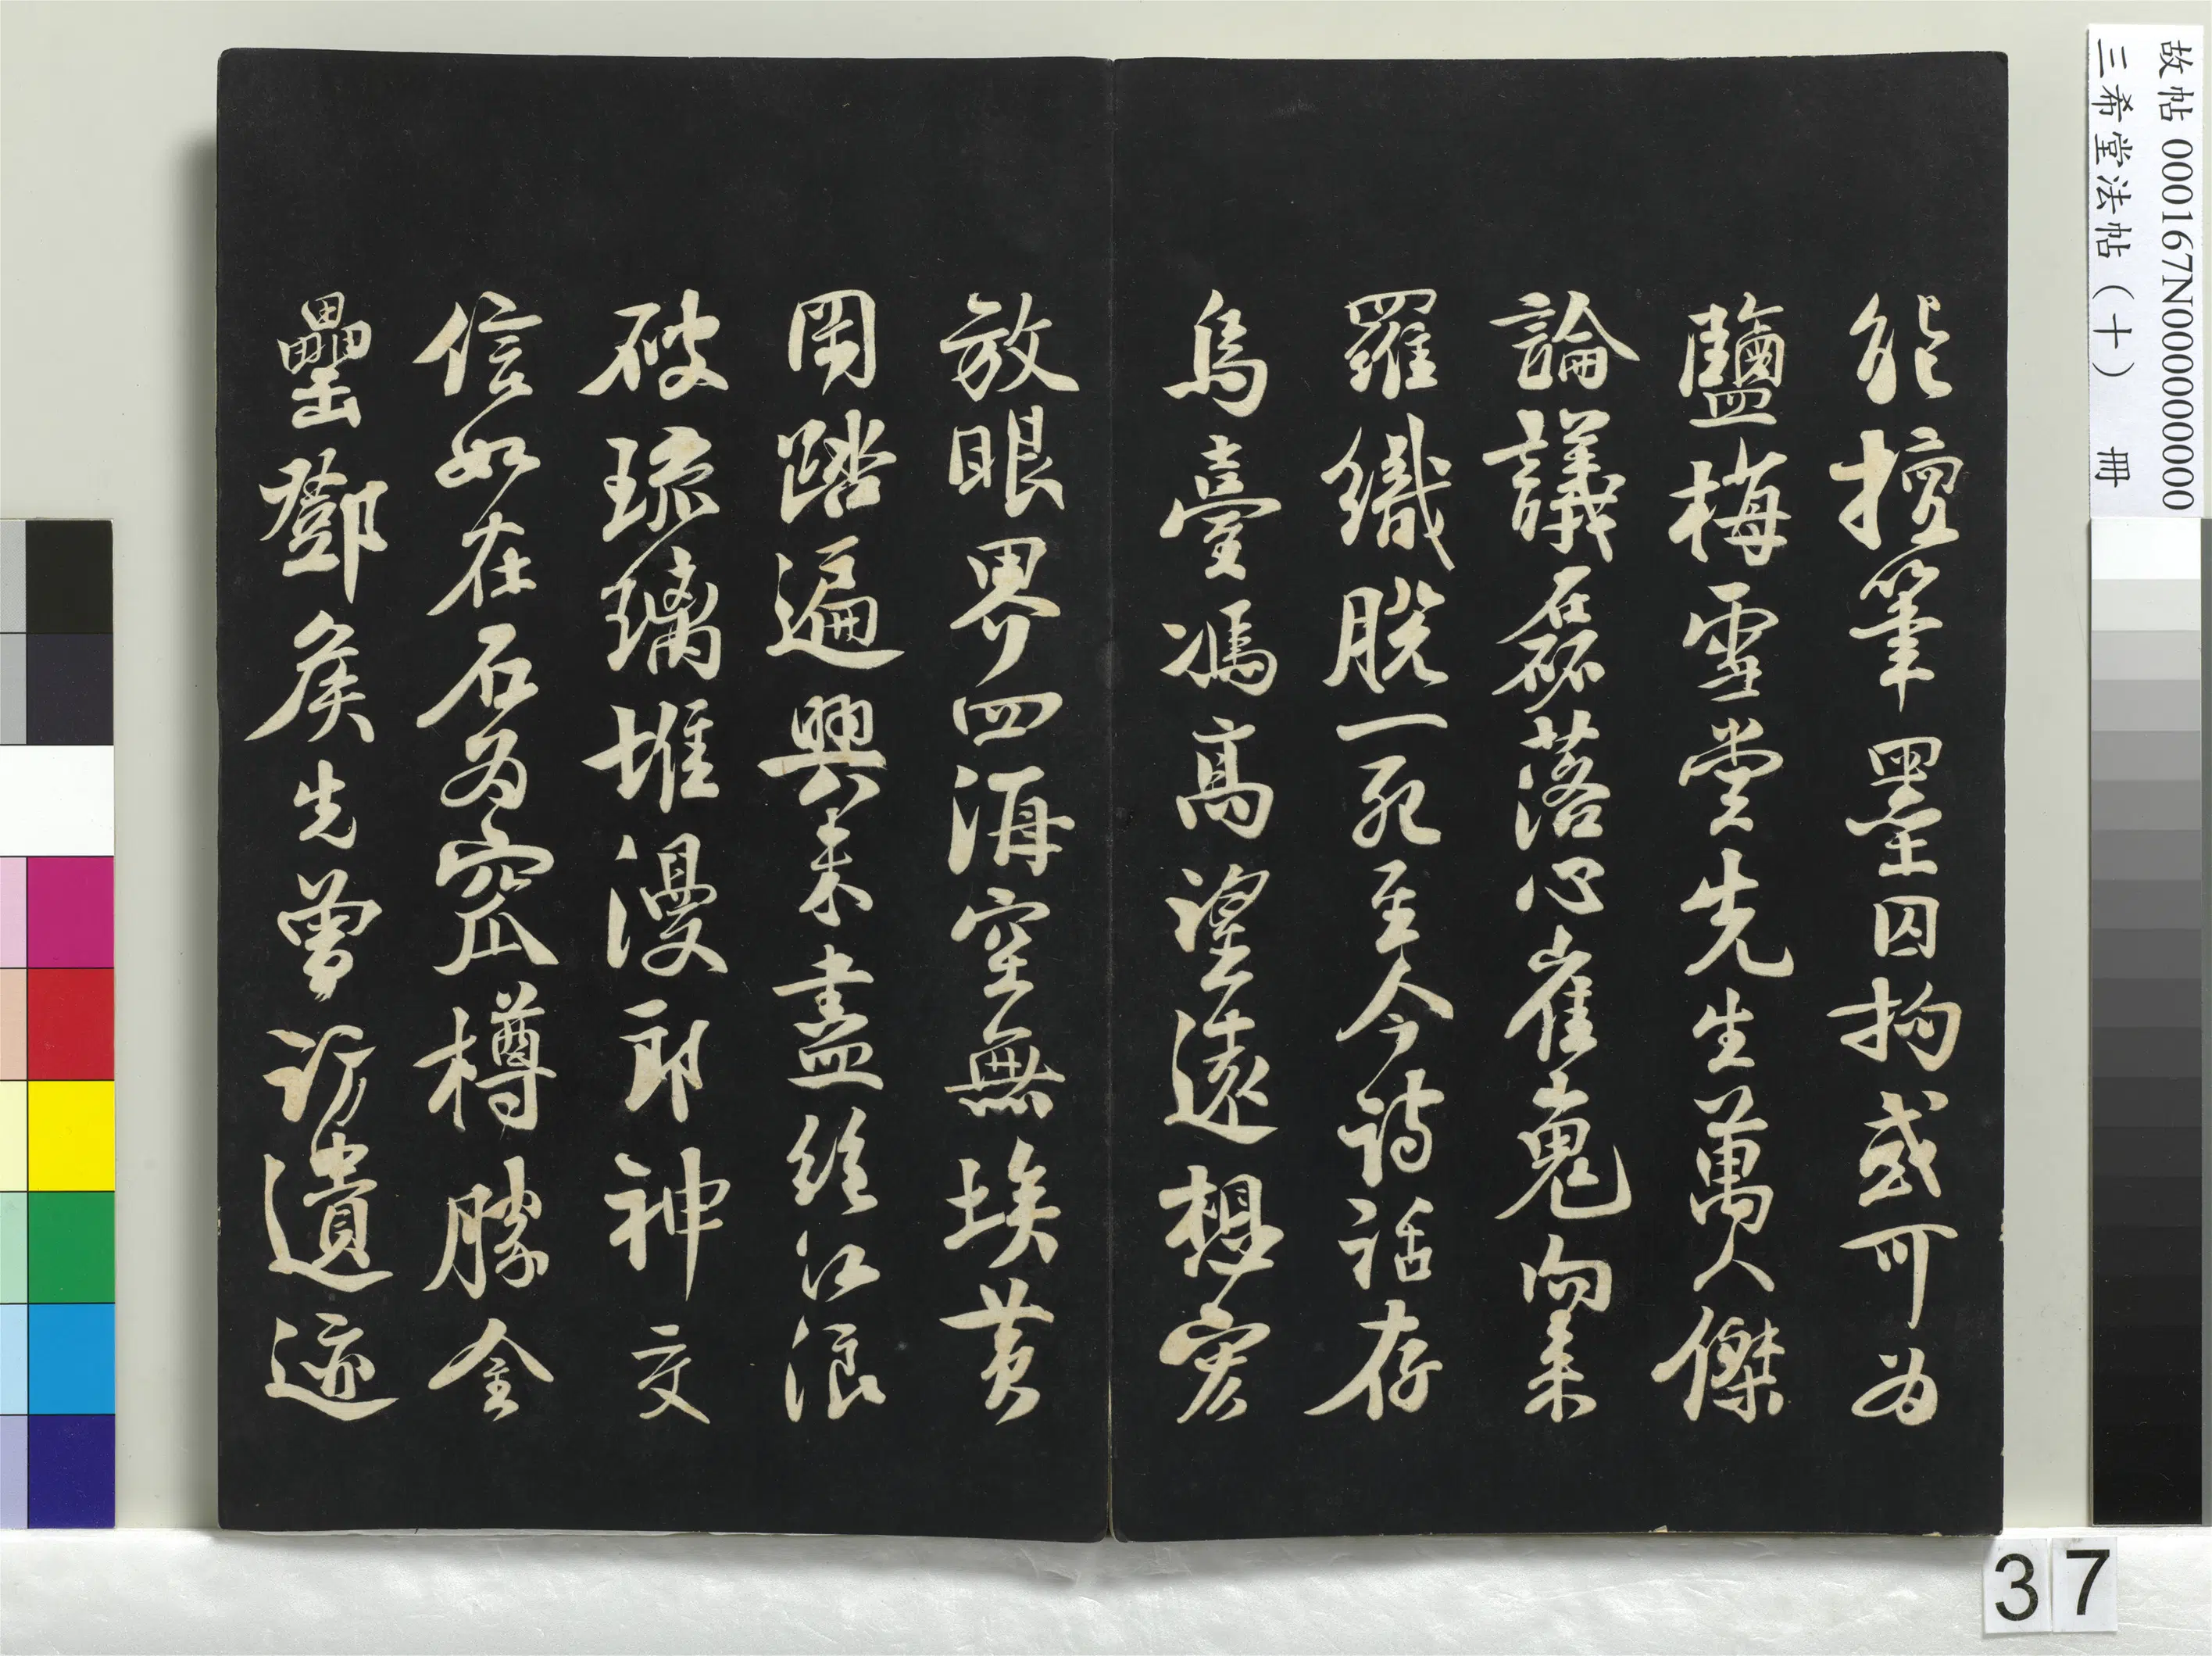 能擅筆墨囚拘或可為
鹽梅雪堂先生萬人傑
論議磊落心崔嵬向來
羅織脫一死至今詩話存
烏臺馮高望遠想宏
放眼界四海空無埃黄
岡踏遍興未盡絕江浪
破琉璃堆漫郎神交
信如在石為窊樽勝金
罍鄧侯先曾訪遺迹
故帖 000167N000000000
三希堂法帖（十） 冊
37